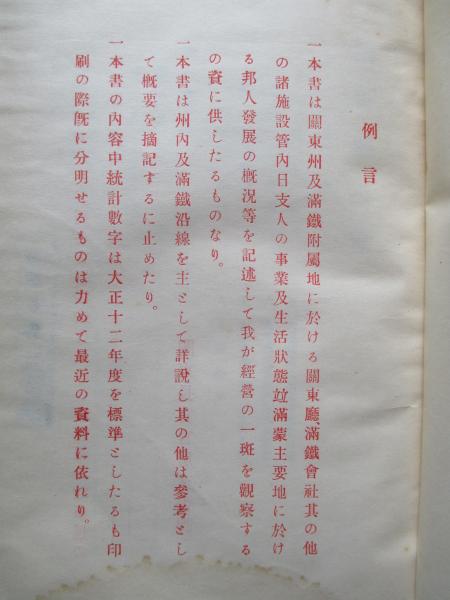 例言
一本書は關東州及滿鐵附屬地に於ける關東廳、滿鐵會社其の他
の諸施設管內日支人の事業及生活狀態竝滿蒙主要地に於け
る邦人發展の槪況等を記述して我が經營の一斑を觀察する
の資に供したるものなり。
一本書は州內及滿鐵沿線を主として詳說し其の他は參考とし
て槪要を摘記するに止めたり。
一本書の內容中統計數字は大正十二年度を標準としたるも印
刷の際旣に分明せるものは力めて最近の資料に依れり。